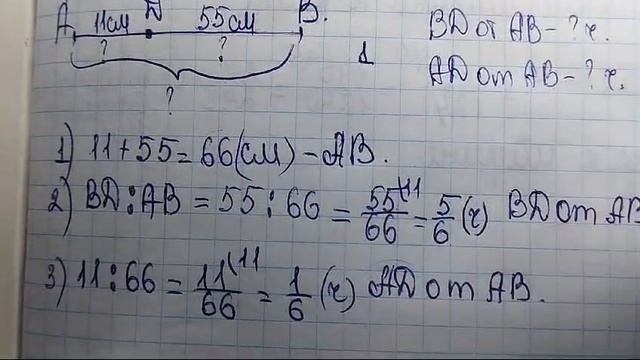 A 11см D 55см B.
? ?
?
BD от AB - ? ч.
1
AD от AB - ? ч.
1) 11 + 55 = 66 (см) - AB.
2) BD : AB = 55 : 66 = 55(11/66 = 5/6 (ч) BD от AB
3) 11 : 66 = 11(11/66 = 1/6 (ч) AD от AB.